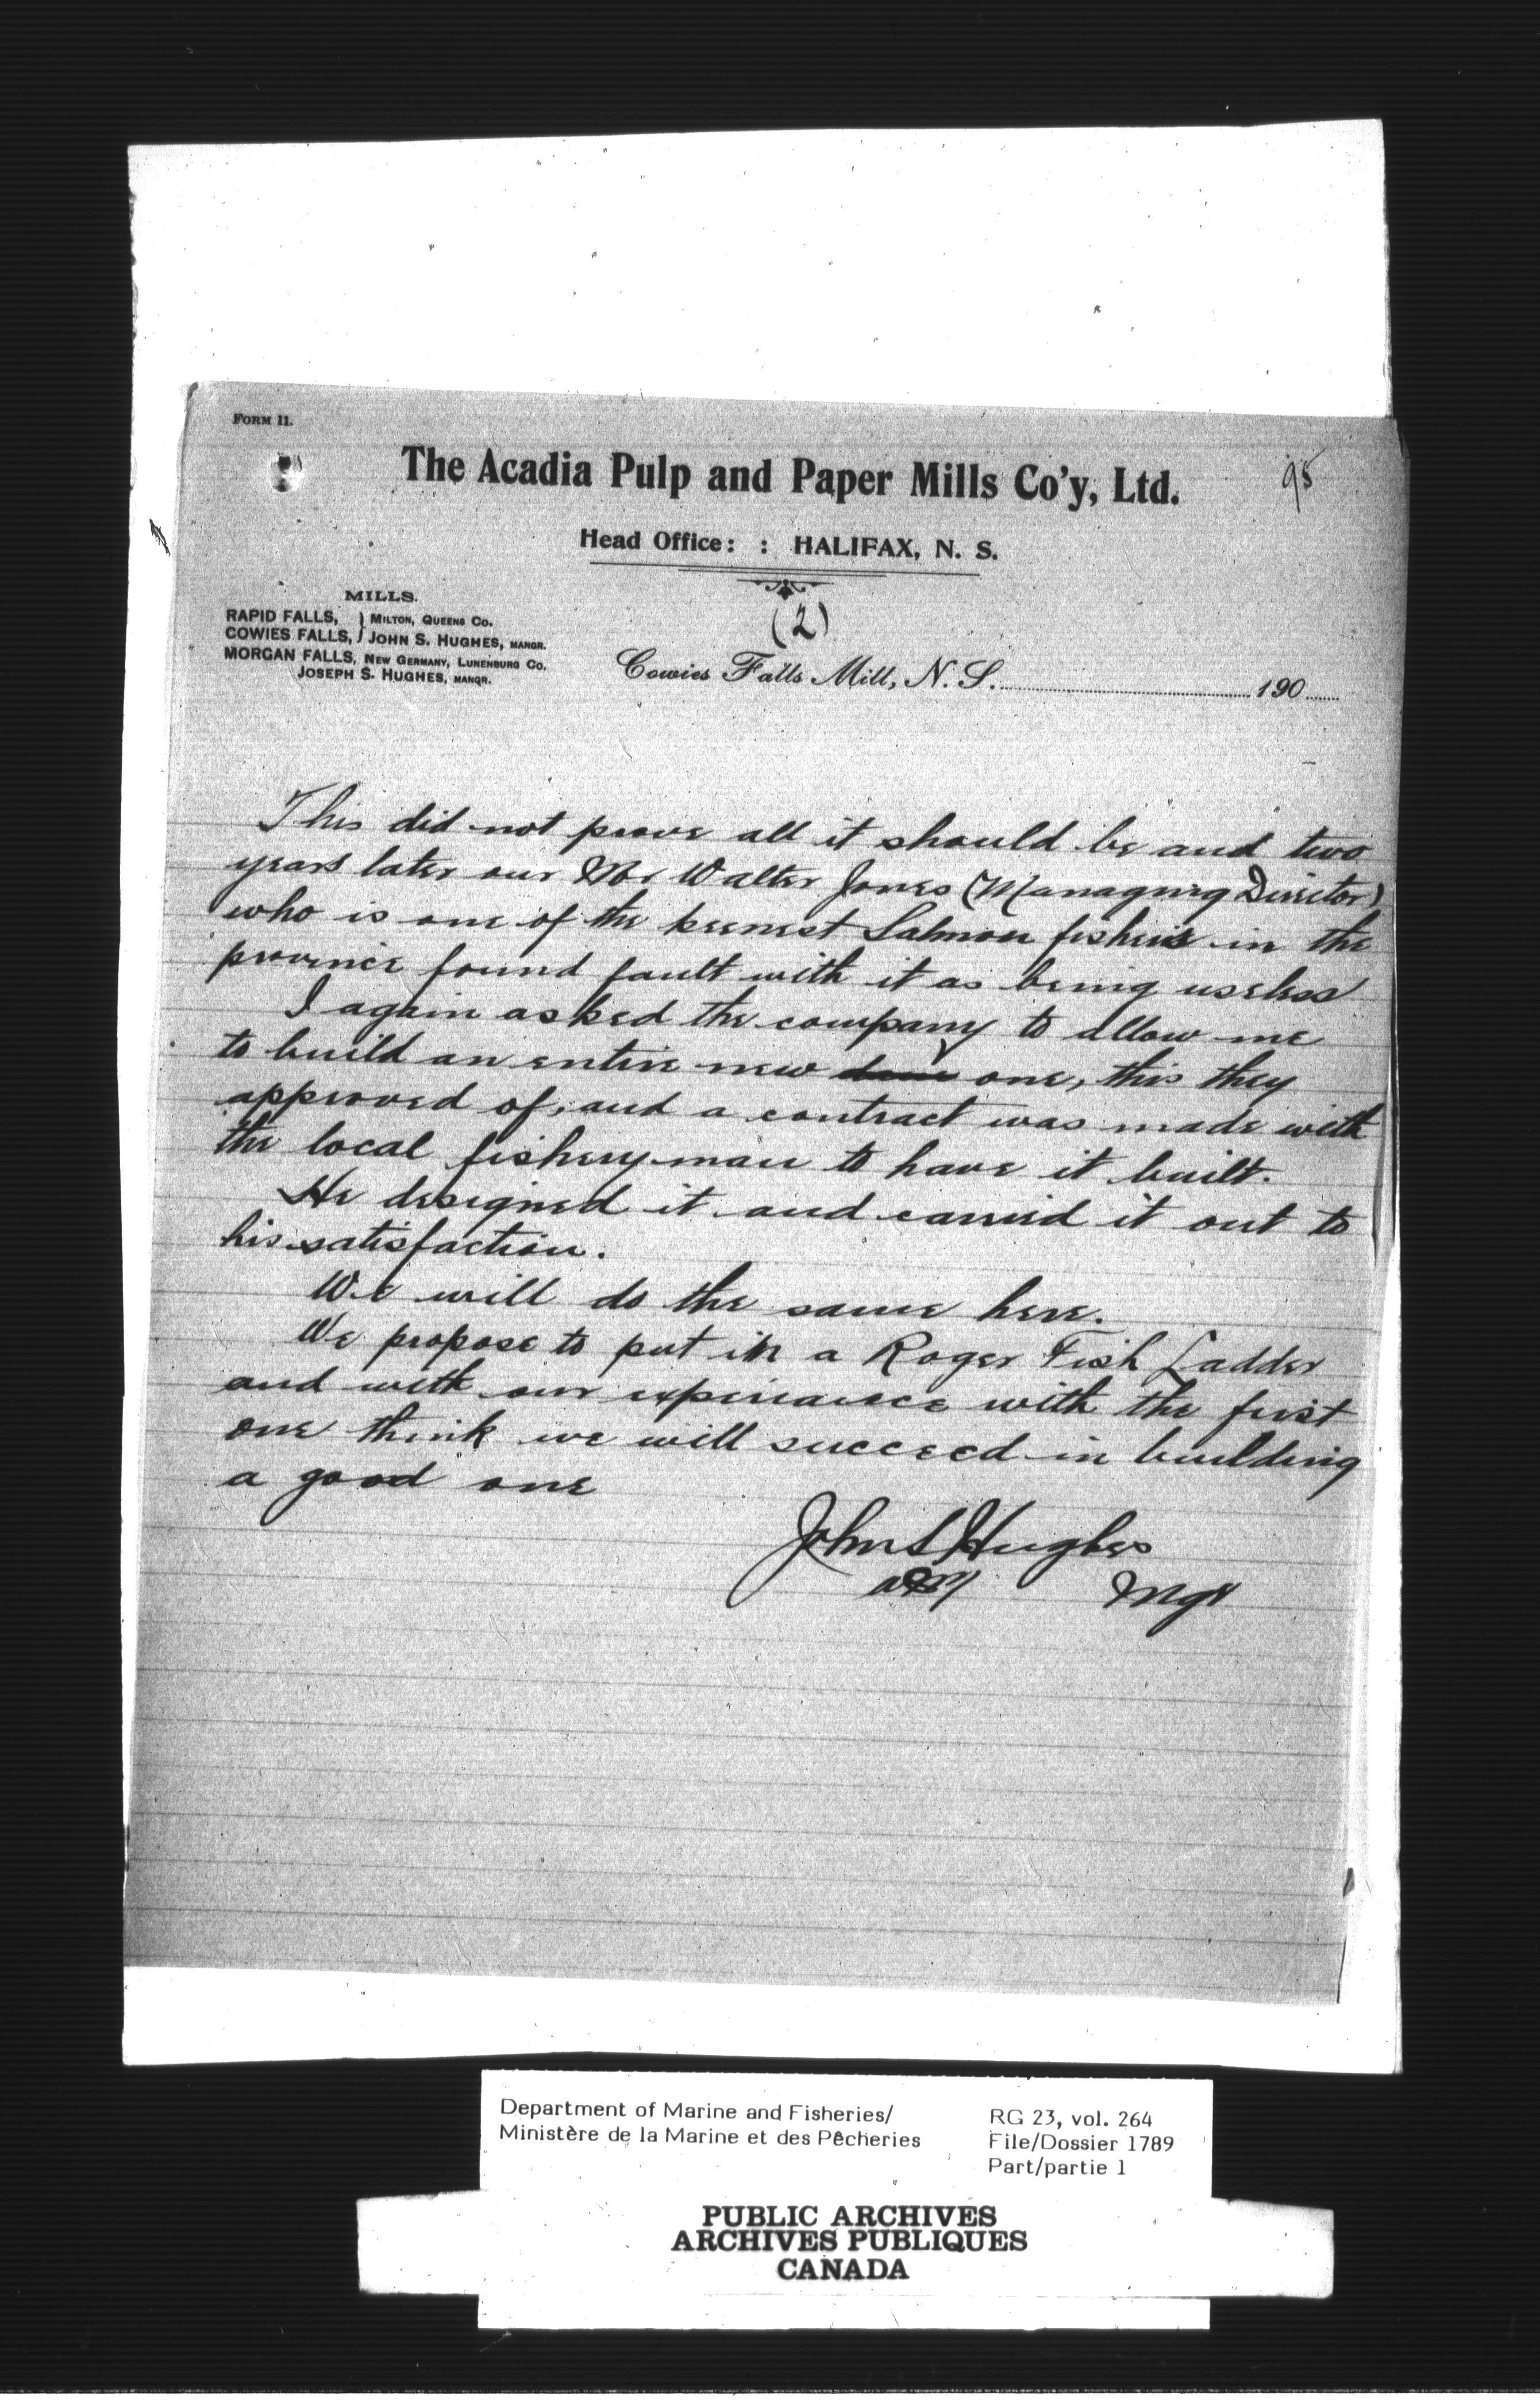 FORM 11.
95
The Acadia Pulp and Paper Mills Co'y, Ltd.
Head Office: : HALIFAX, N. S.
(2)
MILLS.
RAPID FALLS, } MILTON, QUEENS CO.
COWIES FALLS, } JOHN S. HUGHES, MANGR.
MORGAN FALLS, NEW GERMANY, LUNENBURG CO.
JOSEPH S. HUGHES, MANGR.
Cowies Falls Mill, N. S. 190
This did not prove all it should be and two
years later our Mr Walter Jones (Managing Director)
who is one of the keenest Salmon fishers in the
province found fault with it as being useless
I again asked the company to allow me
to build an entire new one, this they
approved of, and a contract was made with
the local fishery man to have it built.
He designed it and carried it out to
his satisfaction.
We will do the same here.
We propose to put in a Roger Fish Ladder
and with our experiance with the first
one think we will succeed in building
a good one
John S Hughes
Mgr
Department of Marine and Fisheries/
Ministère de la Marine et des Pêcheries
RG 23, vol. 264
File/Dossier 1789
Part/partie 1
PUBLIC ARCHIVES
ARCHIVES PUBLIQUES
CANADA